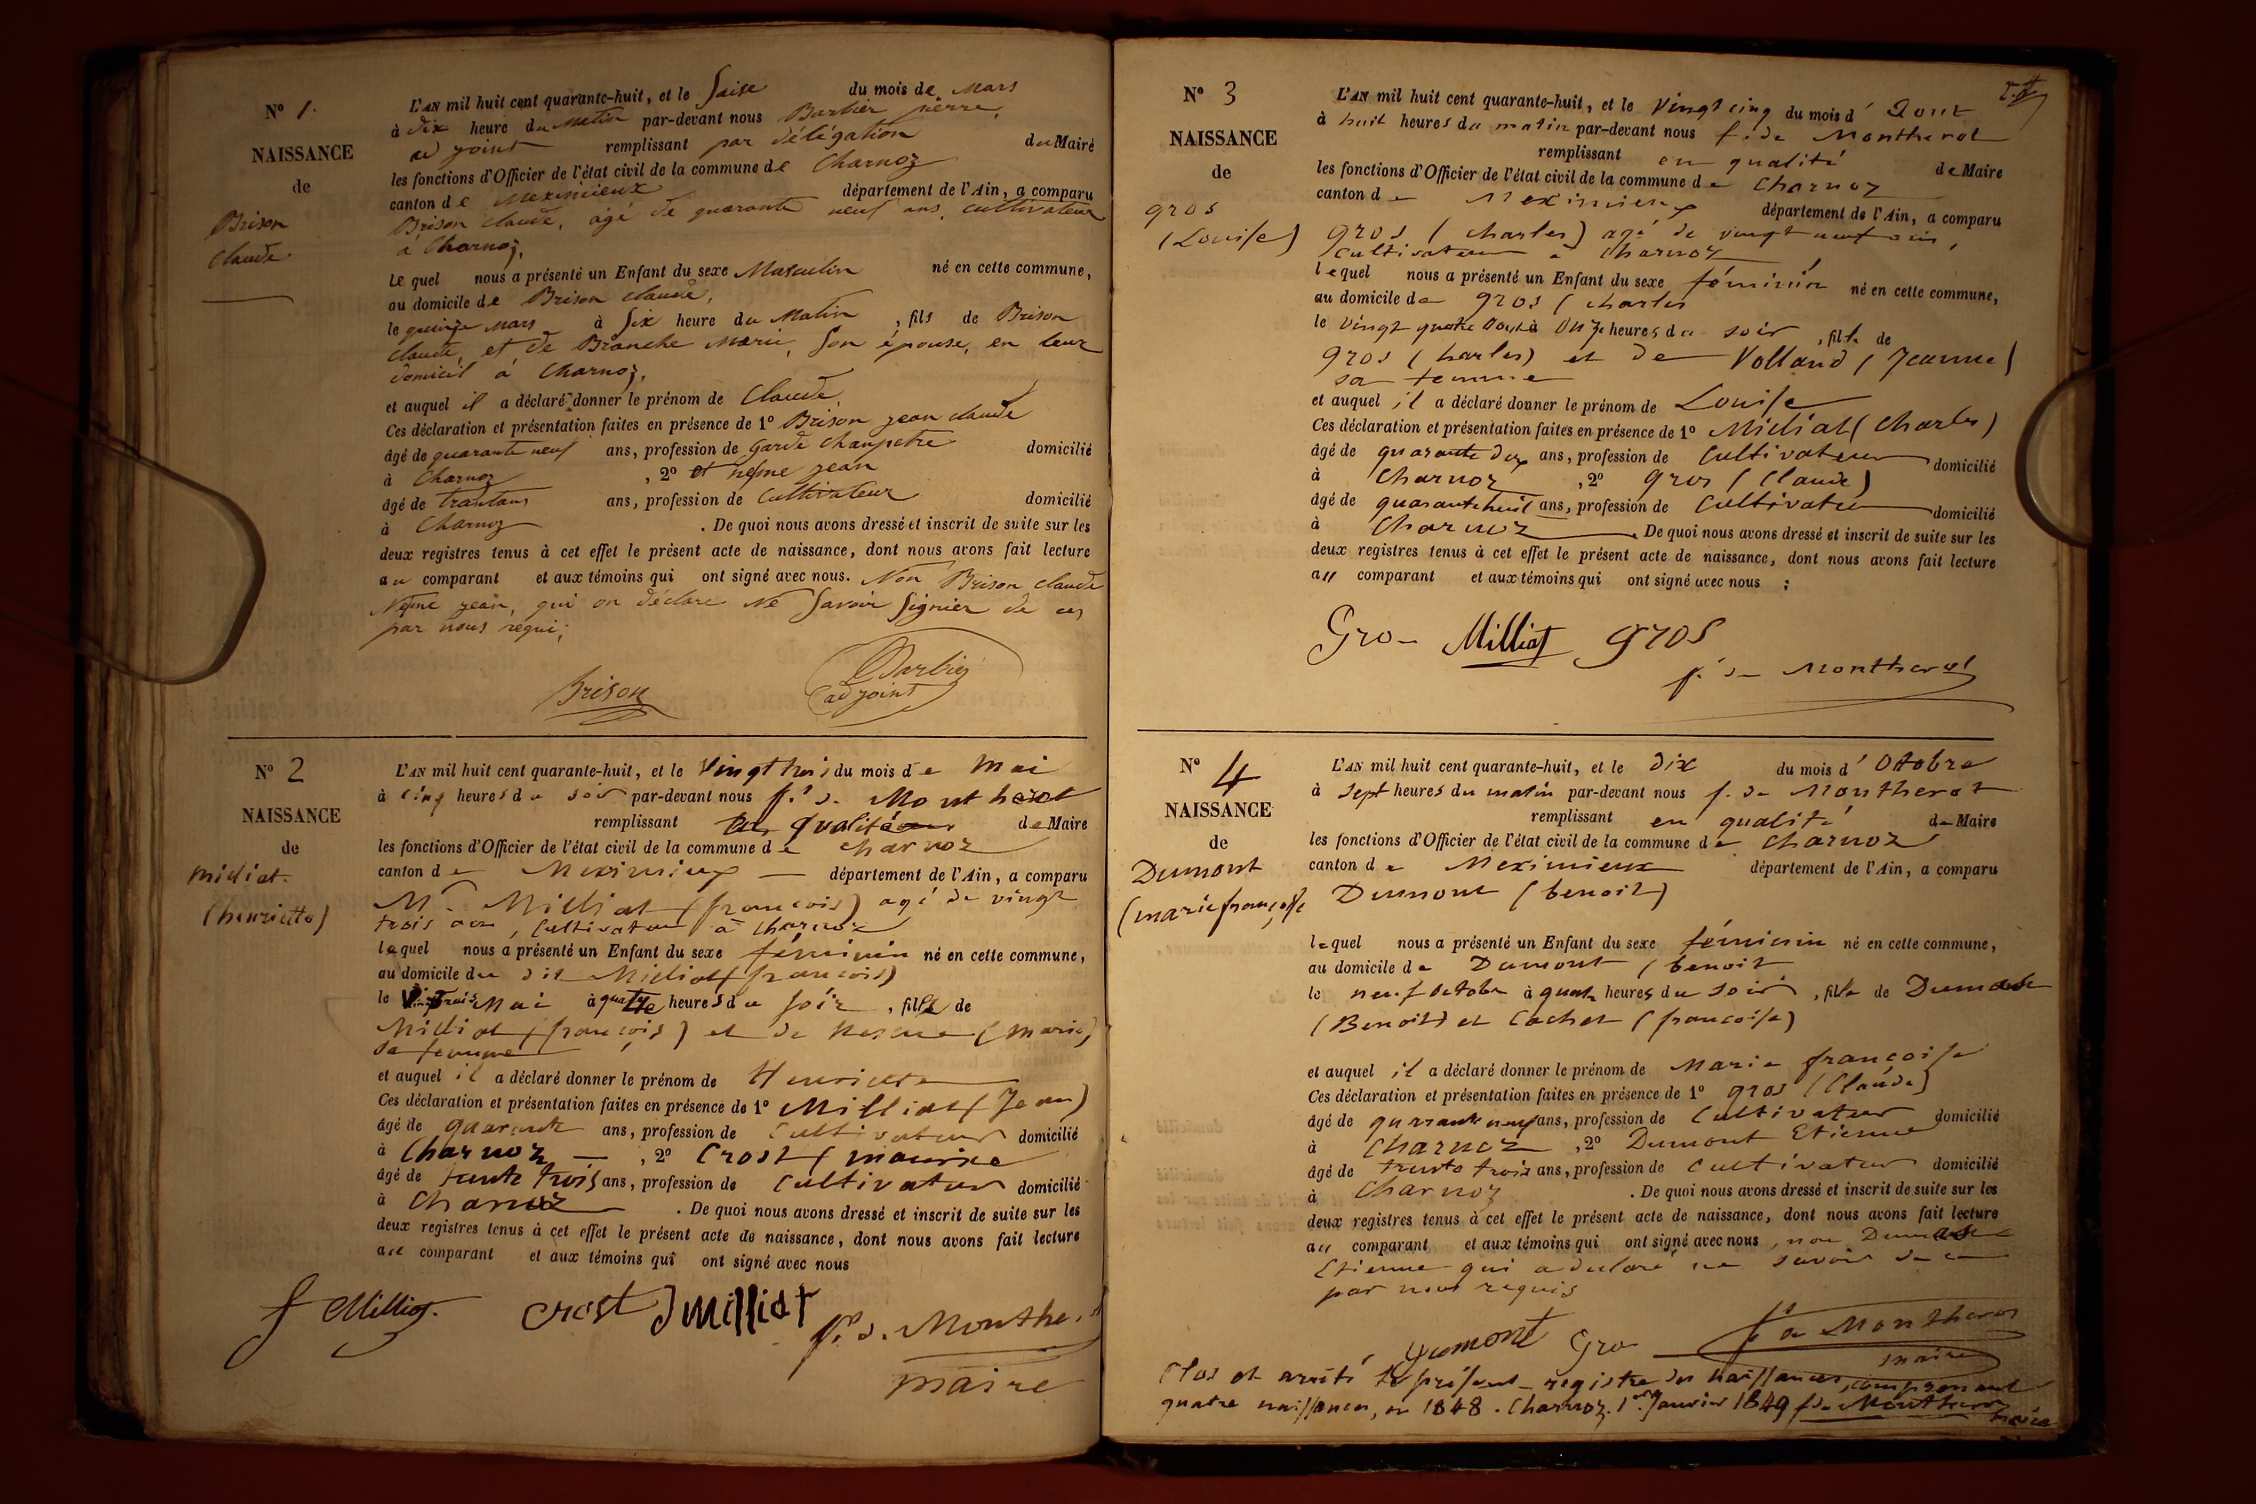 N° 1.
NAISSANCE
de
Brison
Claude
L'AN mil huit cent quarante-huit, et le Saise du mois de Mars
à dix heure du Matin par-devant nous Barbier pierre,
adjoint remplissant par délégation du Maire
les fonctions d'Officier de l'état civil de la commune de Charnoz
canton de Meximieux département de l'Ain, a comparu
Brison Claude, agé de quarante neuf ans, cultivateur
à Charnoz,
Le quel nous a présenté un Enfant du sexe Masculin né en cette commune,
au domicile de Brison claude,
le quinze Mars à Six heure du Matin, fils de Brison
claude, et de Branche Marie, Son épouse, en leur
domicil à Charnoz,
et auquel il a déclaré donner le prénom de Claude,
Ces déclaration et présentation faites en présence de 1° Brison jean claude
âgé de quarante neuf ans, profession de garde champetre domicilié
à Charnoz, 2° et jean
âgé de ans, profession de Cultivateur domicilié
à Charnoz. De quoi nous avons dressé et inscrit de suite sur les
deux registres tenus à cet effet le présent acte de naissance, dont nous avons fait lecture
au comparant et aux témoins qui ont signé avec nous. Non Brison claude
jean, qui on déclare Ne Savoir Signier de ces
par nous requi;
Brison
Barbier
adjoint
N° 2
NAISSANCE
de
Milliat.
(henriette)
L'AN mil huit cent quarante-huit, et le Vingt trois du mois de Mai
à cinq heures du soir par-devant nous f. de Montherot
remplissant en qualité de Maire
les fonctions d'Officier de l'état civil de la commune de Charnoz
canton de Meximieux département de l'Ain, a comparu
M. Milliat (françois) agé de vingt
trois ans, Cultivateur à Charnoz
lequel nous a présenté un Enfant du sexe féminin né en cette commune,
au domicile du dit Milliat (françois)
le Vingt Trois Mai à quatre heures du soir, fille de
Milliat (françois) et de (Marie)
sa femme
et auquel il a déclaré donner le prénom de Henriette
Ces déclaration et présentation faites en présence de 1° Milliat (Jean)
âgé de quarante ans, profession de Cultivateur domicilié
à Charnoz, 2° Crost (maurice
âgé de trente trois ans, profession de Cultivateur domicilié
à Charnoz. De quoi nous avons dressé et inscrit de suite sur les
deux registres tenus à cet effet le présent acte de naissance, dont nous avons fait lecture
au comparant et aux témoins qui ont signé avec nous
f Milliat. crost J Milliat
f. d. Montherot
maire
N° 3
NAISSANCE
de
gros
(Louise)
L'AN mil huit cent quarante-huit, et le Vingt cinq du mois d' Aout
à huit heures du matin par-devant nous f. de Montherot
remplissant en qualité de Maire
les fonctions d'Officier de l'état civil de la commune de Charnoz
canton de Meximieux département de l'Ain, a comparu
gros (charles) agé de vingt neuf ans,
Cultivateur à Charnoz
lequel nous a présenté un Enfant du sexe féminin né en cette commune,
au domicile de gros (charles
le Vingt quatre Aout à onze heures du soir, fille de
gros (charles) et de Volland (Jeanne)
sa femme
et auquel il a déclaré donner le prénom de Louise
Ces déclaration et présentation faites en présence de 1° Milliat (Charles)
âgé de quarante deux ans, profession de Cultivateur domicilié
à Charnoz, 2° gros (Claude)
âgé de quarante huit ans, profession de Cultivateur domicilié
à Charnoz. De quoi nous avons dressé et inscrit de suite sur les
deux registres tenus à cet effet le présent acte de naissance, dont nous avons fait lecture
au comparant et aux témoins qui ont signé avec nous ;
Gros Milliat gros
f. de Montherot
N° 4
NAISSANCE
de
Dumont
(marie françoise
L'AN mil huit cent quarante-huit, et le dix du mois d' Octobre
à sept heures du matin par-devant nous f. de Montherot
remplissant en qualité de Maire
les fonctions d'Officier de l'état civil de la commune de Charnoz
canton de Meximieux département de l'Ain, a comparu
Dumont (benoit)
lequel nous a présenté un Enfant du sexe féminin né en cette commune,
au domicile de Dumont (benoit
le neuf octobre à quatre heures du soir, fille de Dumont
(Benoit) et Cachet (françoise)
et auquel il a déclaré donner le prénom de Marie françoise
Ces déclaration et présentation faites en présence de 1° gros (Claude)
âgé de quarante neuf ans, profession de Cultivateur domicilié
à Charnoz, 2° Dumont Etienne
âgé de trente trois ans, profession de Cultivateur domicilié
à Charnoz. De quoi nous avons dressé et inscrit de suite sur les
deux registres tenus à cet effet le présent acte de naissance, dont nous avons fait lecture
au comparant et aux témoins qui ont signé avec nous, non Dumont
Etienne qui a declaré ne savoir de ce
par nous requis
Dumont Gros f. de Montherot
maire
Clos et arrêté le présent registre des naissances, comprenant
quatre naissances, en 1848. Charnoz. 1er Janvier 1849 f. de Montherot
maire